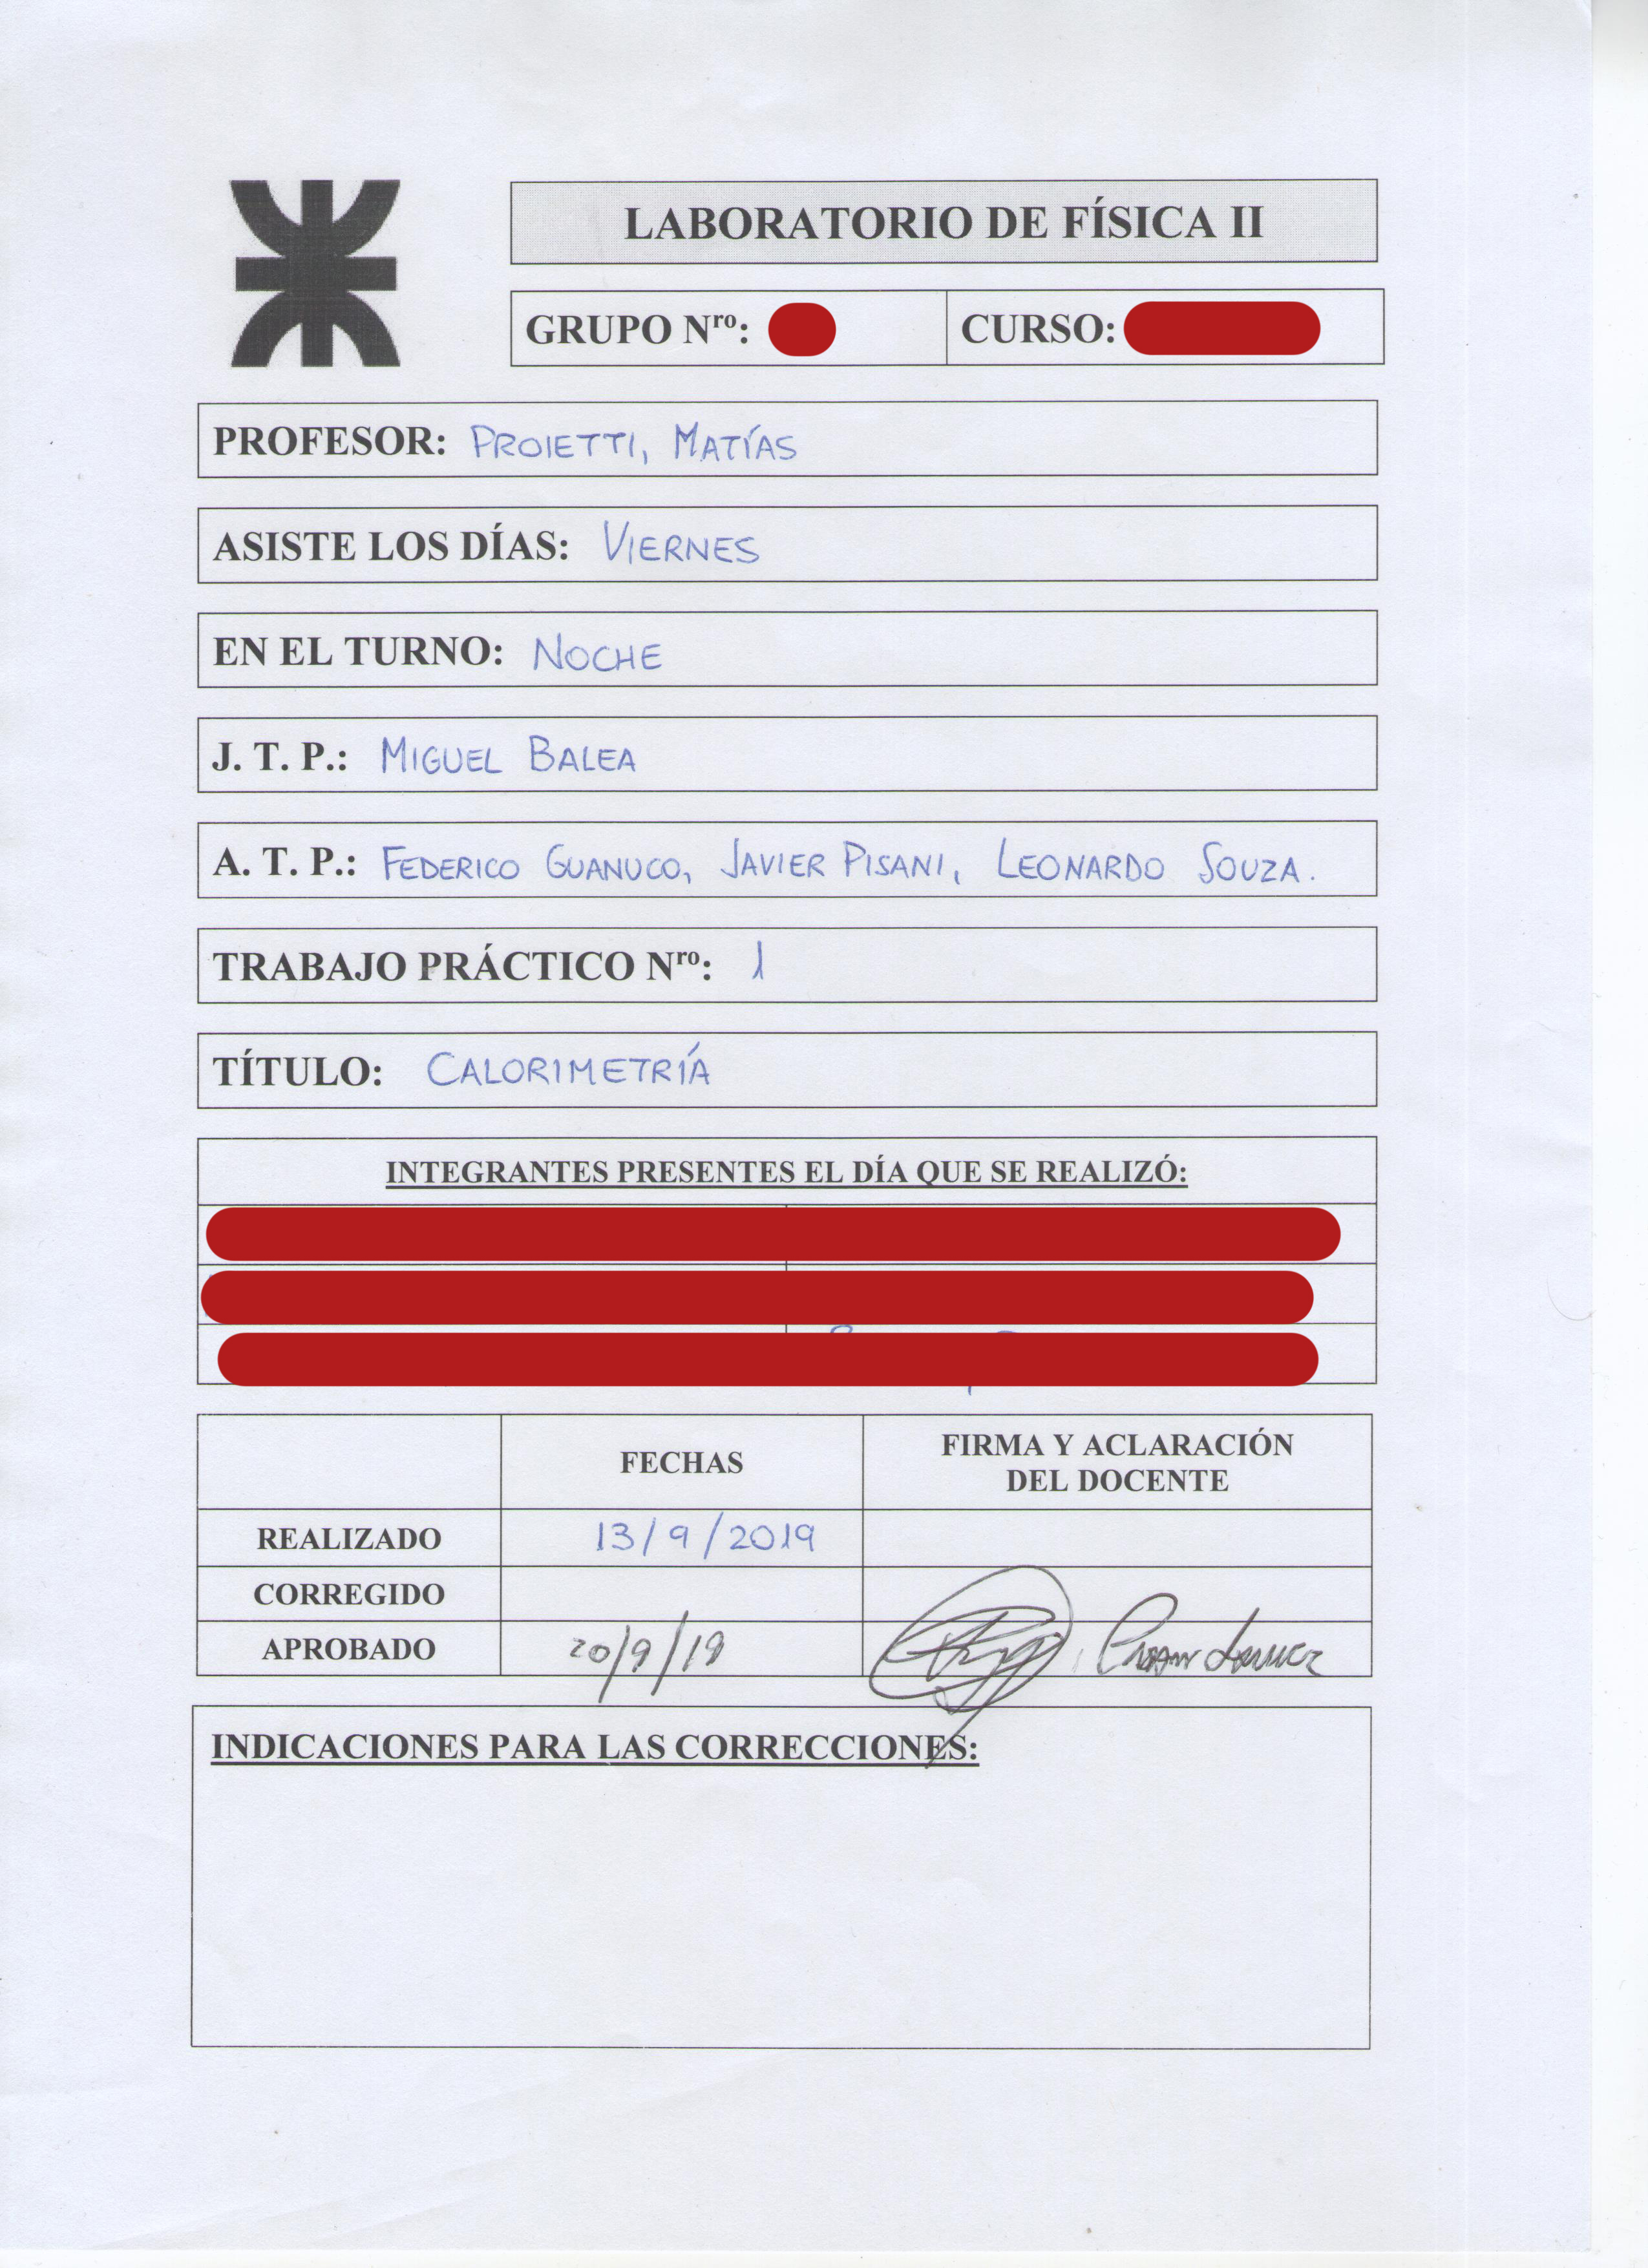 LABORATORIO DE FÍSICA II
GRUPO Nro: CURSO:
PROFESOR: PROIETTI, MATÍAS
ASISTE LOS DÍAS: VIERNES
EN EL TURNO: NOCHE
J. T. P.: MIGUEL BALEA
A. T. P.: FEDERICO GUANUCO, JAVIER PISANI, LEONARDO SOUZA.
TRABAJO PRÁCTICO Nro: 1
TÍTULO: CALORIMETRÍA
INTEGRANTES PRESENTES EL DÍA QUE SE REALIZÓ:
FECHAS
FIRMA Y ACLARACIÓN
DEL DOCENTE
REALIZADO 13/9/2019
CORREGIDO
APROBADO 20/9/19
INDICACIONES PARA LAS CORRECCIONES: